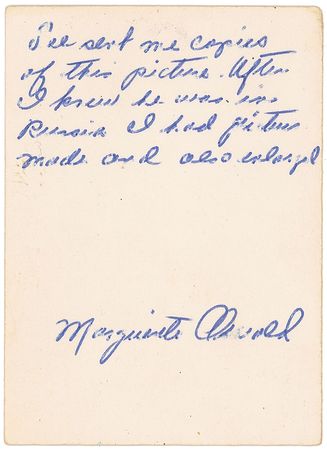 Lee sent me copies
of this picture. After
I knew he was in
Russia I had picture
made and also enlarged
Marguerite Oswald